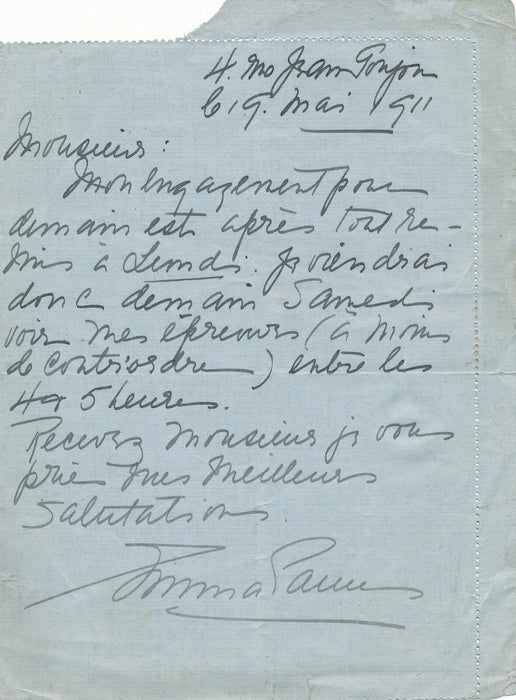 4. rue Jean Goujon
le 19. Mai 1911
Monsieur:
Mon engagement pour
demain est après tout re-
mis à Lundi. Je viendrai
donc demain Samedi
voir mes épreuves (à moins
de contriordre) entre les
4 et 5 heures.
Recevez Monsieur je vous
prie mes meilleurs
Salutations.
Emma Eames